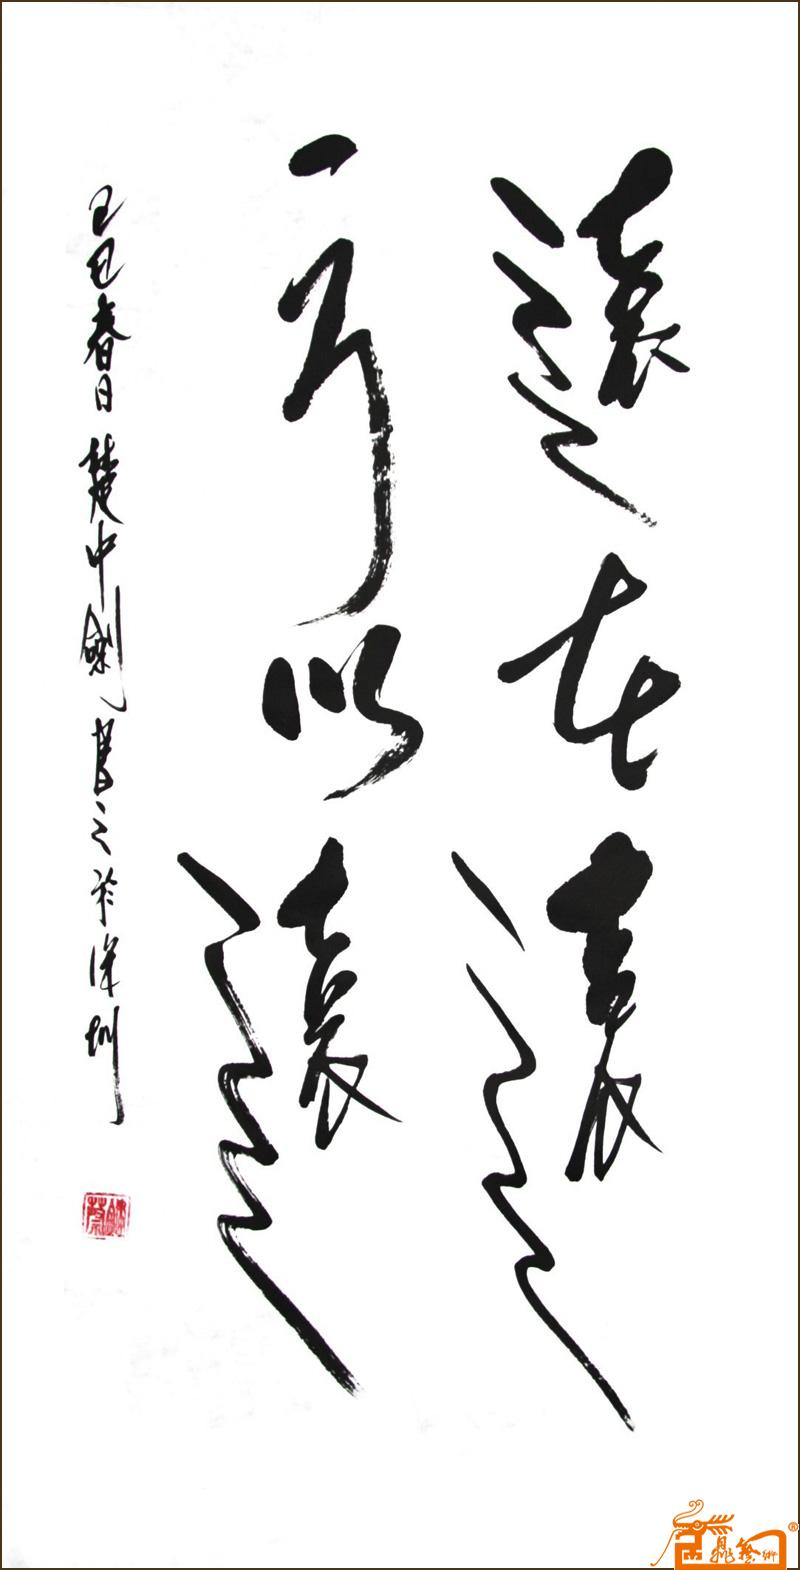 遠在遠
可以遠
己丑春日楚中劍書之於深圳